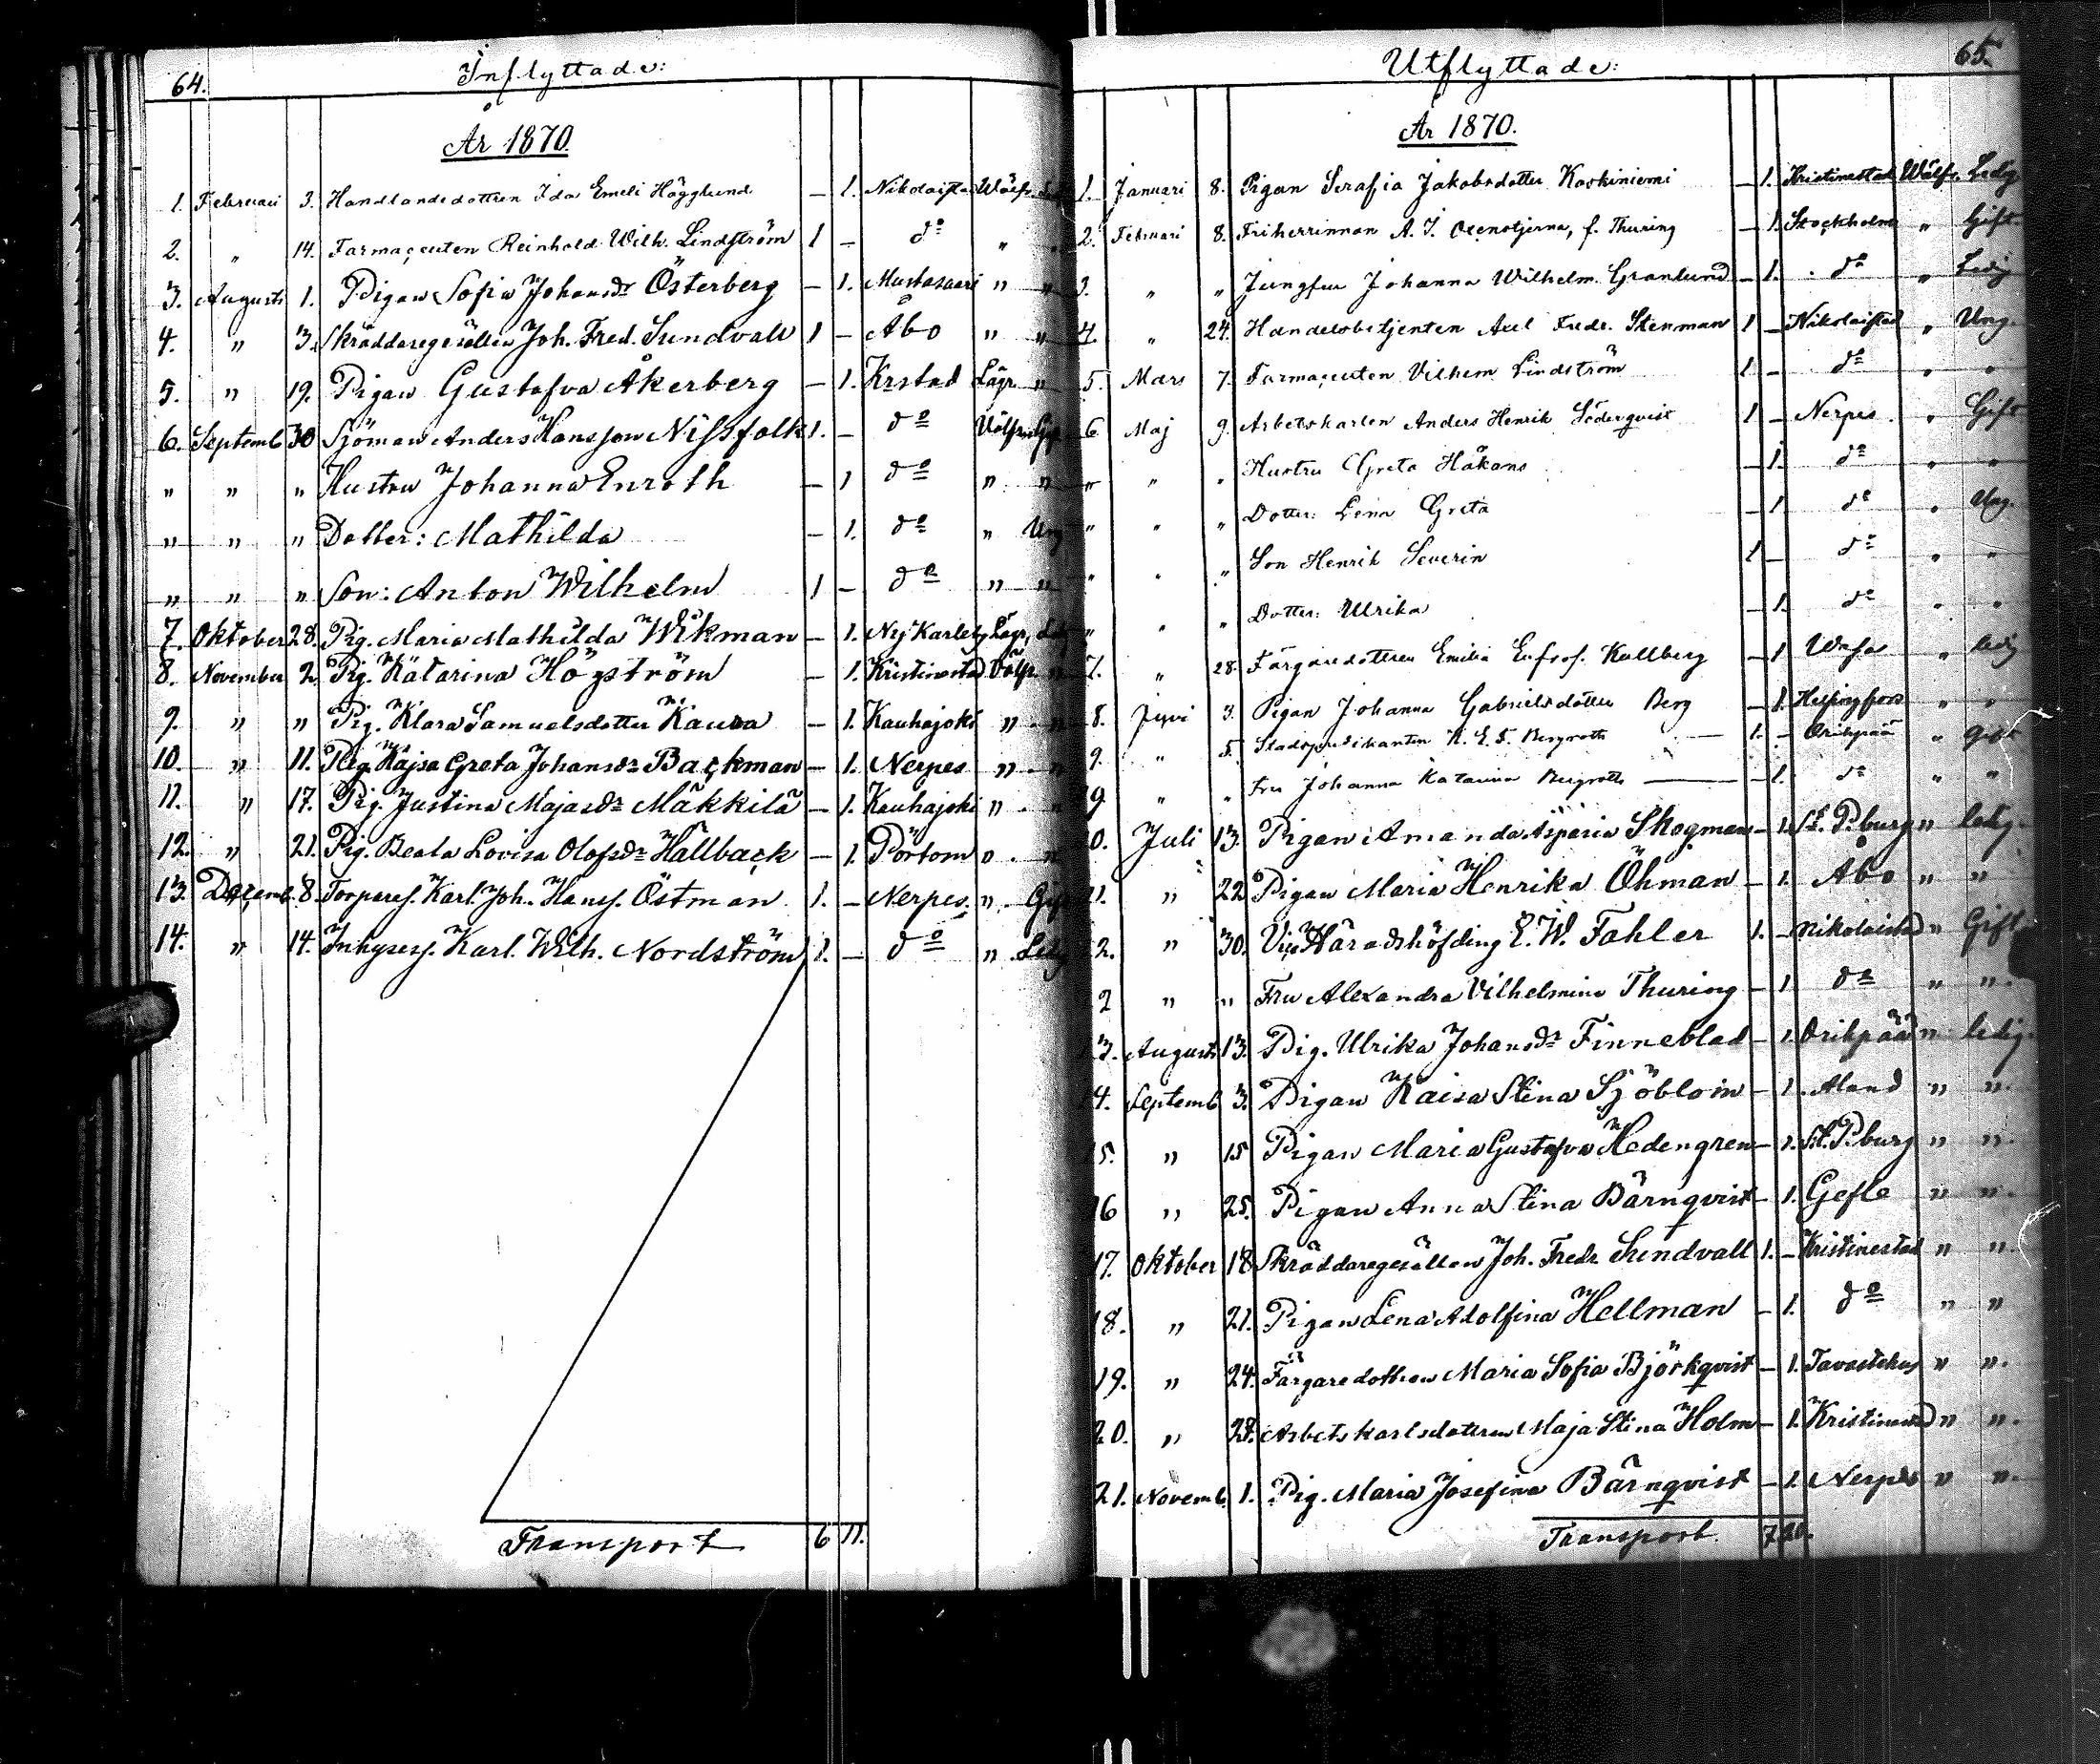 64.
Inflyttade:
År 1870.
1. Februari 3. Handlandedottren Ida Emeli Högglund — 1. Nikolaista Wälfr. Led
2. " 14. Farmaceuten Reinhold Wilh. Lindström 1 — do " "
3. Augusti 1. Pigan Sofia Johansdr Österberg — 1. Mustasaari " "
4. " 3. Skräddaregesällen Joh. Fred. Sundvall 1 — Åbo " "
5. " 19. Pigan Gustafva Åkerberg — 1. Krstad Lägr "
6. Septemb 30 Sjöman Anders Hansson Nissfolk 1. — do Wälfr Gif
" " " Hustru Johanna Enroth — 1 do " "
" " " Dotter: Mathilda — 1. do " Ung
" " " Son: Anton Wilhelm 1 — do " "
7. Oktober 28. Pig. Maria Mathilda Wikman — 1. Ny Karleby Lägr, Led
8. November 2. Pig. Katarina Högström — 1. Kristinestad Välfr. "
9. " " Pig. Klara Samuelsdotter Kaura — 1. Kauhajoki " "
10. " 11. Pig. Kajsa Greta Johansdr Backman — 1. Nerpes " "
11. " 17. Pig. Justina Majasdr Mäkkilä — 1. Kauhajoki " "
12. " 21. Pig. Beata Lovisa Olofsdr Hällback — 1. Pörtom " "
13. Decemb. 8. Torpares. Karl Joh. Hanss. Östman 1. — Nerpes. " Gif
14. " 14. Inhyses. Karl. Wilh. Nordström 1. — do " Ledg
Transport 6 11.
65.
Utflyttade:
År 1870.
1. Januari 8. Pigan Serafia Jakobsdotter Koskiniemi — 1. Kristinestad Wälfr. Ledig
2. Februari 8. Friherrinnan A. I. Oxenstjerna, f. Thuring — 1. Stockholm " Gift.
3. " " Jungfru Johanna Wilhelm. Granlund — 1. do " Ledig
4. " 24. Handelsbetjenten Axel Fredr. Stenman 1 — Nikolaistad " Ung.
5. Mars 7. Farmaceuten Vilhem Lindström 1 — do " "
6. Maj 9. Arbetskarlen Anders Henrik Söderqvist 1 — Nerpes. " Gift
" " " Hustru Greta Håkans — 1. do " "
" " " Dotter: Lena Greta — 1 do " Ung.
" " " Son Henrik Severin 1 — do " "
" " " Dotter: Ulrika — 1. do " "
7. " 28. Färgaredottren Emilia Eufros. Kullberg — 1 Wasa " ledig
8. Juni 3. Pigan Johanna Gabrielsdotter Berg — 1. Helsingfors " "
9. " 5. Stadspredikanten K. E. F. Bergroth 1. — Orihpää " gift
9. " " Fru Johanna Katarina Bergroth — 1. do " "
10. Juli 13. Pigan Amanda Asparia Skogman — 1. St. P.burg " ledig.
11. " 22 Pigan Maria Henrika Öhman — 1. Åbo " "
12. " 30. Vice Häradshöfding E. W. Fahler 1. — Nikolaistad " Gift
2 " " Fru Alexandra Vilhelmina Thuring — 1 do " "
13. Augusti 13. Pig. Ulrika Johansdr Finneblad — 1. Orihpää " ledig.
14. Septemb 3. Pigan Kaisa Stina Sjöblom — 1. Åland " "
15. " 15 Pigan Maria Gustafva Hedengren — 1. St. P.burg " "
16 " 25. Pigan Anna Stina Bärnqvist — 1. Gefle " "
17. Oktober 18 Skräddaregesällen Joh. Fredr Sundvall 1. — Kristinestad " "
18. " 21. Pigan Lena Adolfina Hellman — 1. do " "
19. " 24. Färgaredottren Maria Sofia Björkqvist — 1. Tavastehus " "
20. " 28. Arbetskarlsdottren Maja Stina Holm — 1. Kristinestad " "
21. Novemb. 1. Pig. Maria Josefina Bärnqvist — 1. Nerpes " "
Transport. 7 20.